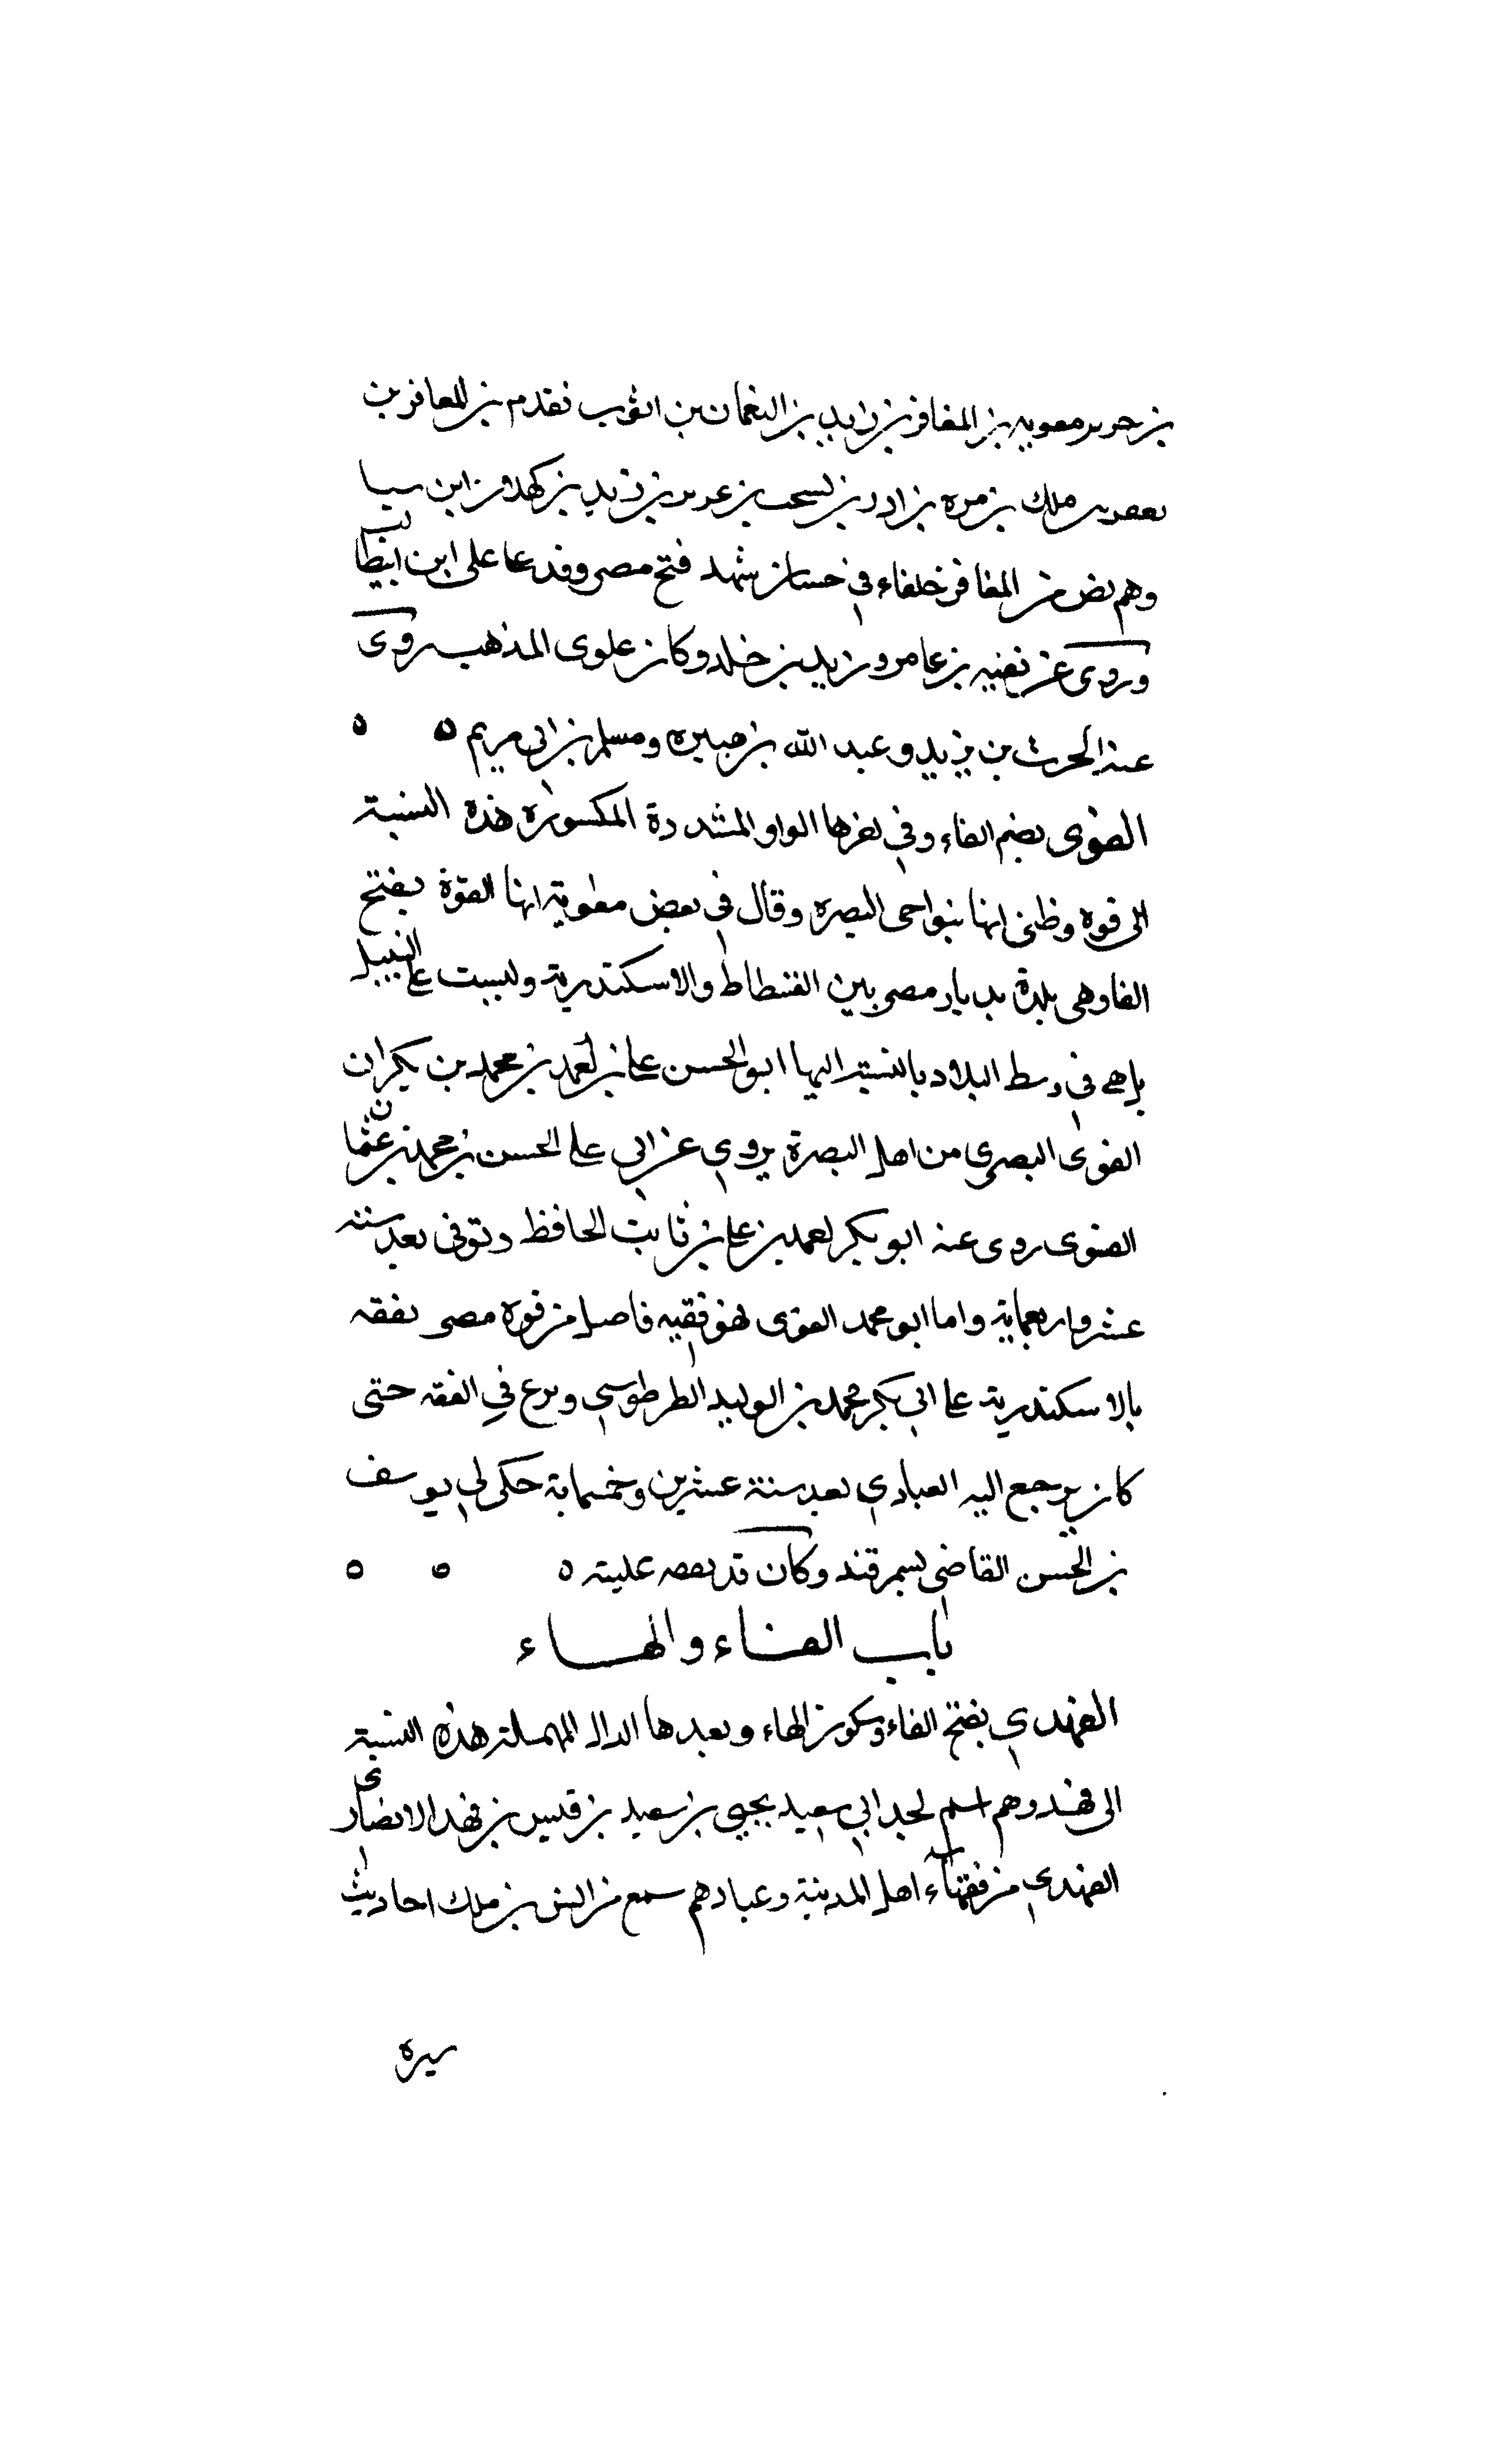 بن حرب معويه بن المغافر بن زايد بن النعمان بن ايوب تقدم بن المعافر بن
يعفر بن ملك بن مره بن ادد بن يشجب بن عريب بن زيد بن كهلان ابن سبا
وهم بض من المغافر خلفاء في حسان شهد فتح مصر وفد عا على ابن ابيطالب
وروى عن نعنيه بن عامر وزيد بن خلد وكان علوى المذهب روى
عنه الحرث بن يزيد وعبد الله بن هبيره ومسلم بن ابي مريم ه ه
الفوى بضم الفاء وفي اخرها الواو المشددة المكسوره هذه النسبة
الى فوه وظنى انها بنواحى البصره وقال في بعض مغلوية انها الفوة بفتح
الفا وهى بلدة بديار مصر بين الفسطاط والاسكندرية وليست على النيل
بل هى في وسط البلاد بالنسبة اليها ابو الحسن على بن احمد بن محمد بن بكران
الفوى البصرى من اهل البصرة يروى عن ابي على الحسن بن محمد بن عثمان
الفنوى روى عنه ابو بكر احمد بن على بن ثابت الحافظ وتوفى بعد سنة
عشر واربعماية واما ابو محمد الفوى فهو فقيه فاضل من فوة مصر تفقه
بالاسكندرية على ابي بكر محمد بن الوليد الطرطوسي وبرع في الفقه حتى
كان يرجع اليه العبادي بعد سنة عشرين وخمسماية حكى لي يوسف
بن الحسن القاضي بسمرقند وكان قد تفقه عليه ه ه ه
باب الفاء والهاء
الفهدي بفتح الفاء وسكون الهاء وبعدها الدال المهملة هذه النسبة
الى فهد وهم اسم لجد ابي سعيد يحيى بن سعيد بن قيس بن فهد الانصارى
الفهدي من فقهاء اهل المدينة وعبادهم سمع من انس بن ملك احاديث
سيره